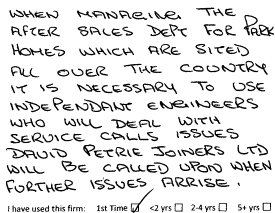 WHEN MANAGING THE
AFTER SALES DEPT FOR PARK
HOMES WHICH ARE SITED
ALL OVER THE COUNTRY
IT IS NECESSARY TO USE
INDEPENDANT ENGINEERS
WHO WILL DEAL WITH
SERVICE CALLS ISSUES
DAVID PETRIE JOINERS LTD
WILL BE CALLED UPON WHEN
FURTHER ISSUES ARRISE.
I have used this firm: 1st Time ☑ <2 yrs ☐ 2-4 yrs ☐ 5+ yrs ☐